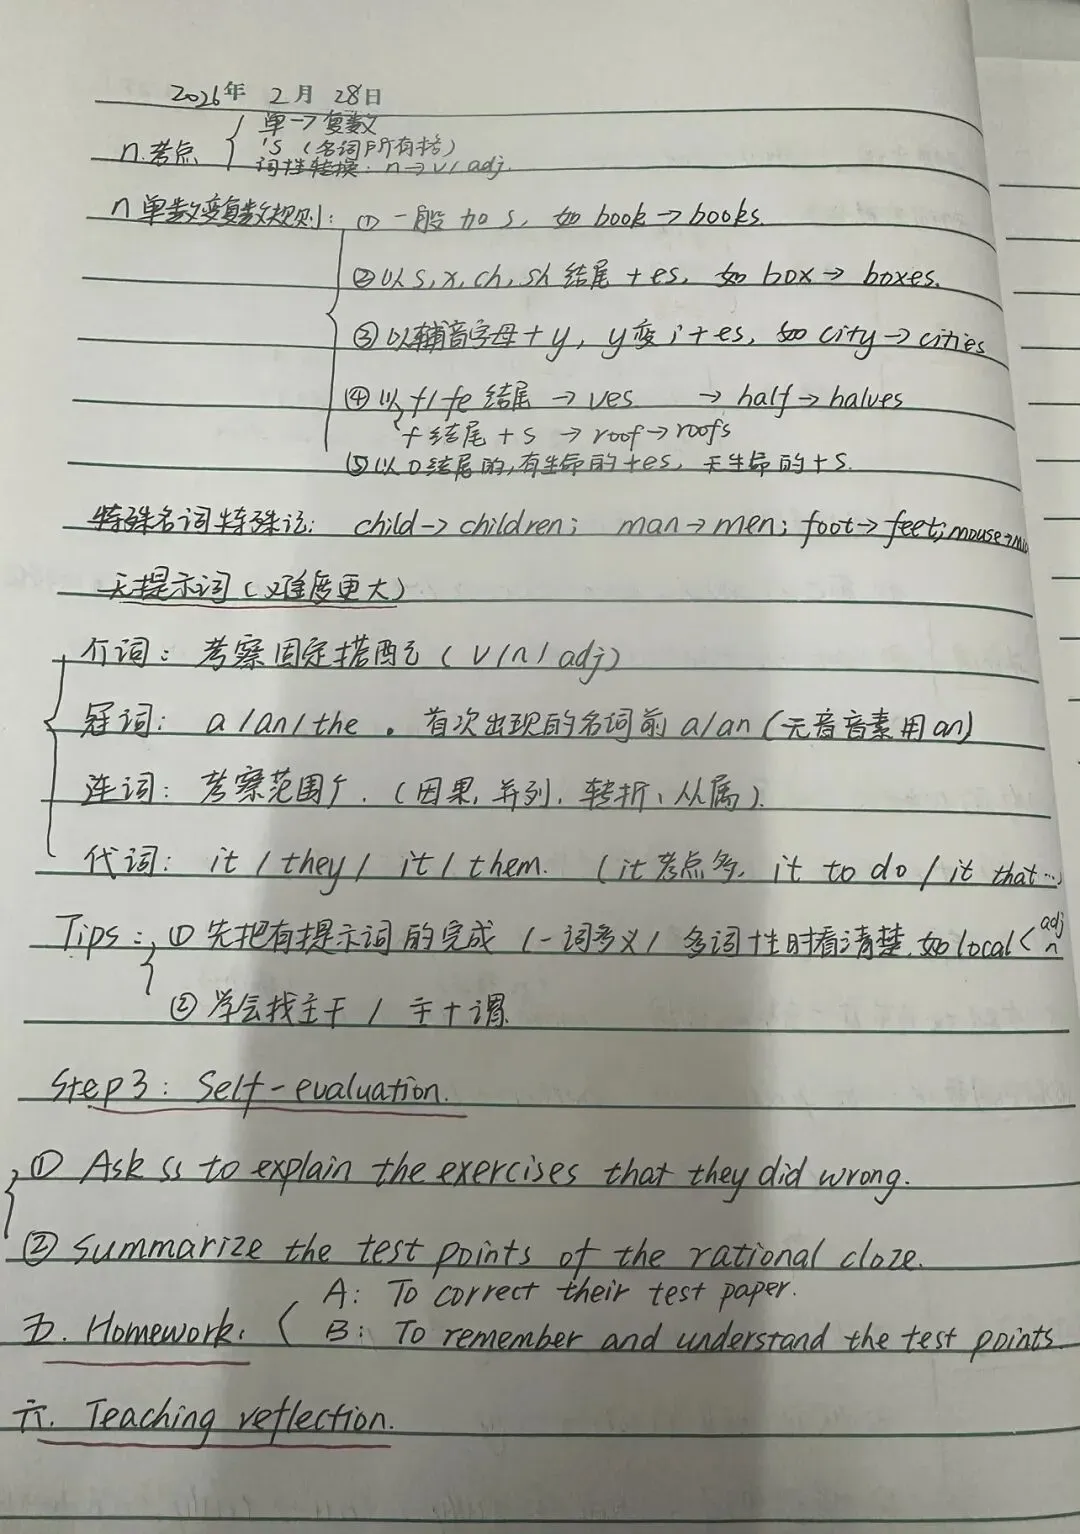 2026年 2月 28日
单→复数
n.考点 's (名词所有格)
词性转换: n→v/adj.
n单数变复数规则: ① 一般加s, 如 book→books.
②以s,x,ch,sh结尾+es, 如 box→boxes.
③以辅音字母+y, y变i+es, 如 city→cities
④以f/fe结尾→ves →half→halves
f结尾+s →roof→roofs
⑤以o结尾的,有生命的+es, 无生命的+s.
特殊名词特殊记: child→children; man→men; foot→feet; mouse→mi
无提示词(难度更大)
介词: 考察固定搭配(v/n/adj)
冠词: a/an/the. 首次出现的名词前a/an(元音音素用an)
连词: 考察范围广.(因果,并列,转折、从属).
代词: it/they/it/them. (it考点多, it to do/it that…)
Tips: ①先把有提示词的完成(一词多义/多词性时看清楚.如local<adj n
②学会找主干/主+谓
Step3: Self-evaluation.
① Ask ss to explain the exercises that they did wrong.
② Summarize the test points of the rational cloze.
A: To correct their test paper.
五. Homework. B: To remember and understand the test points.
六. Teaching reflection.